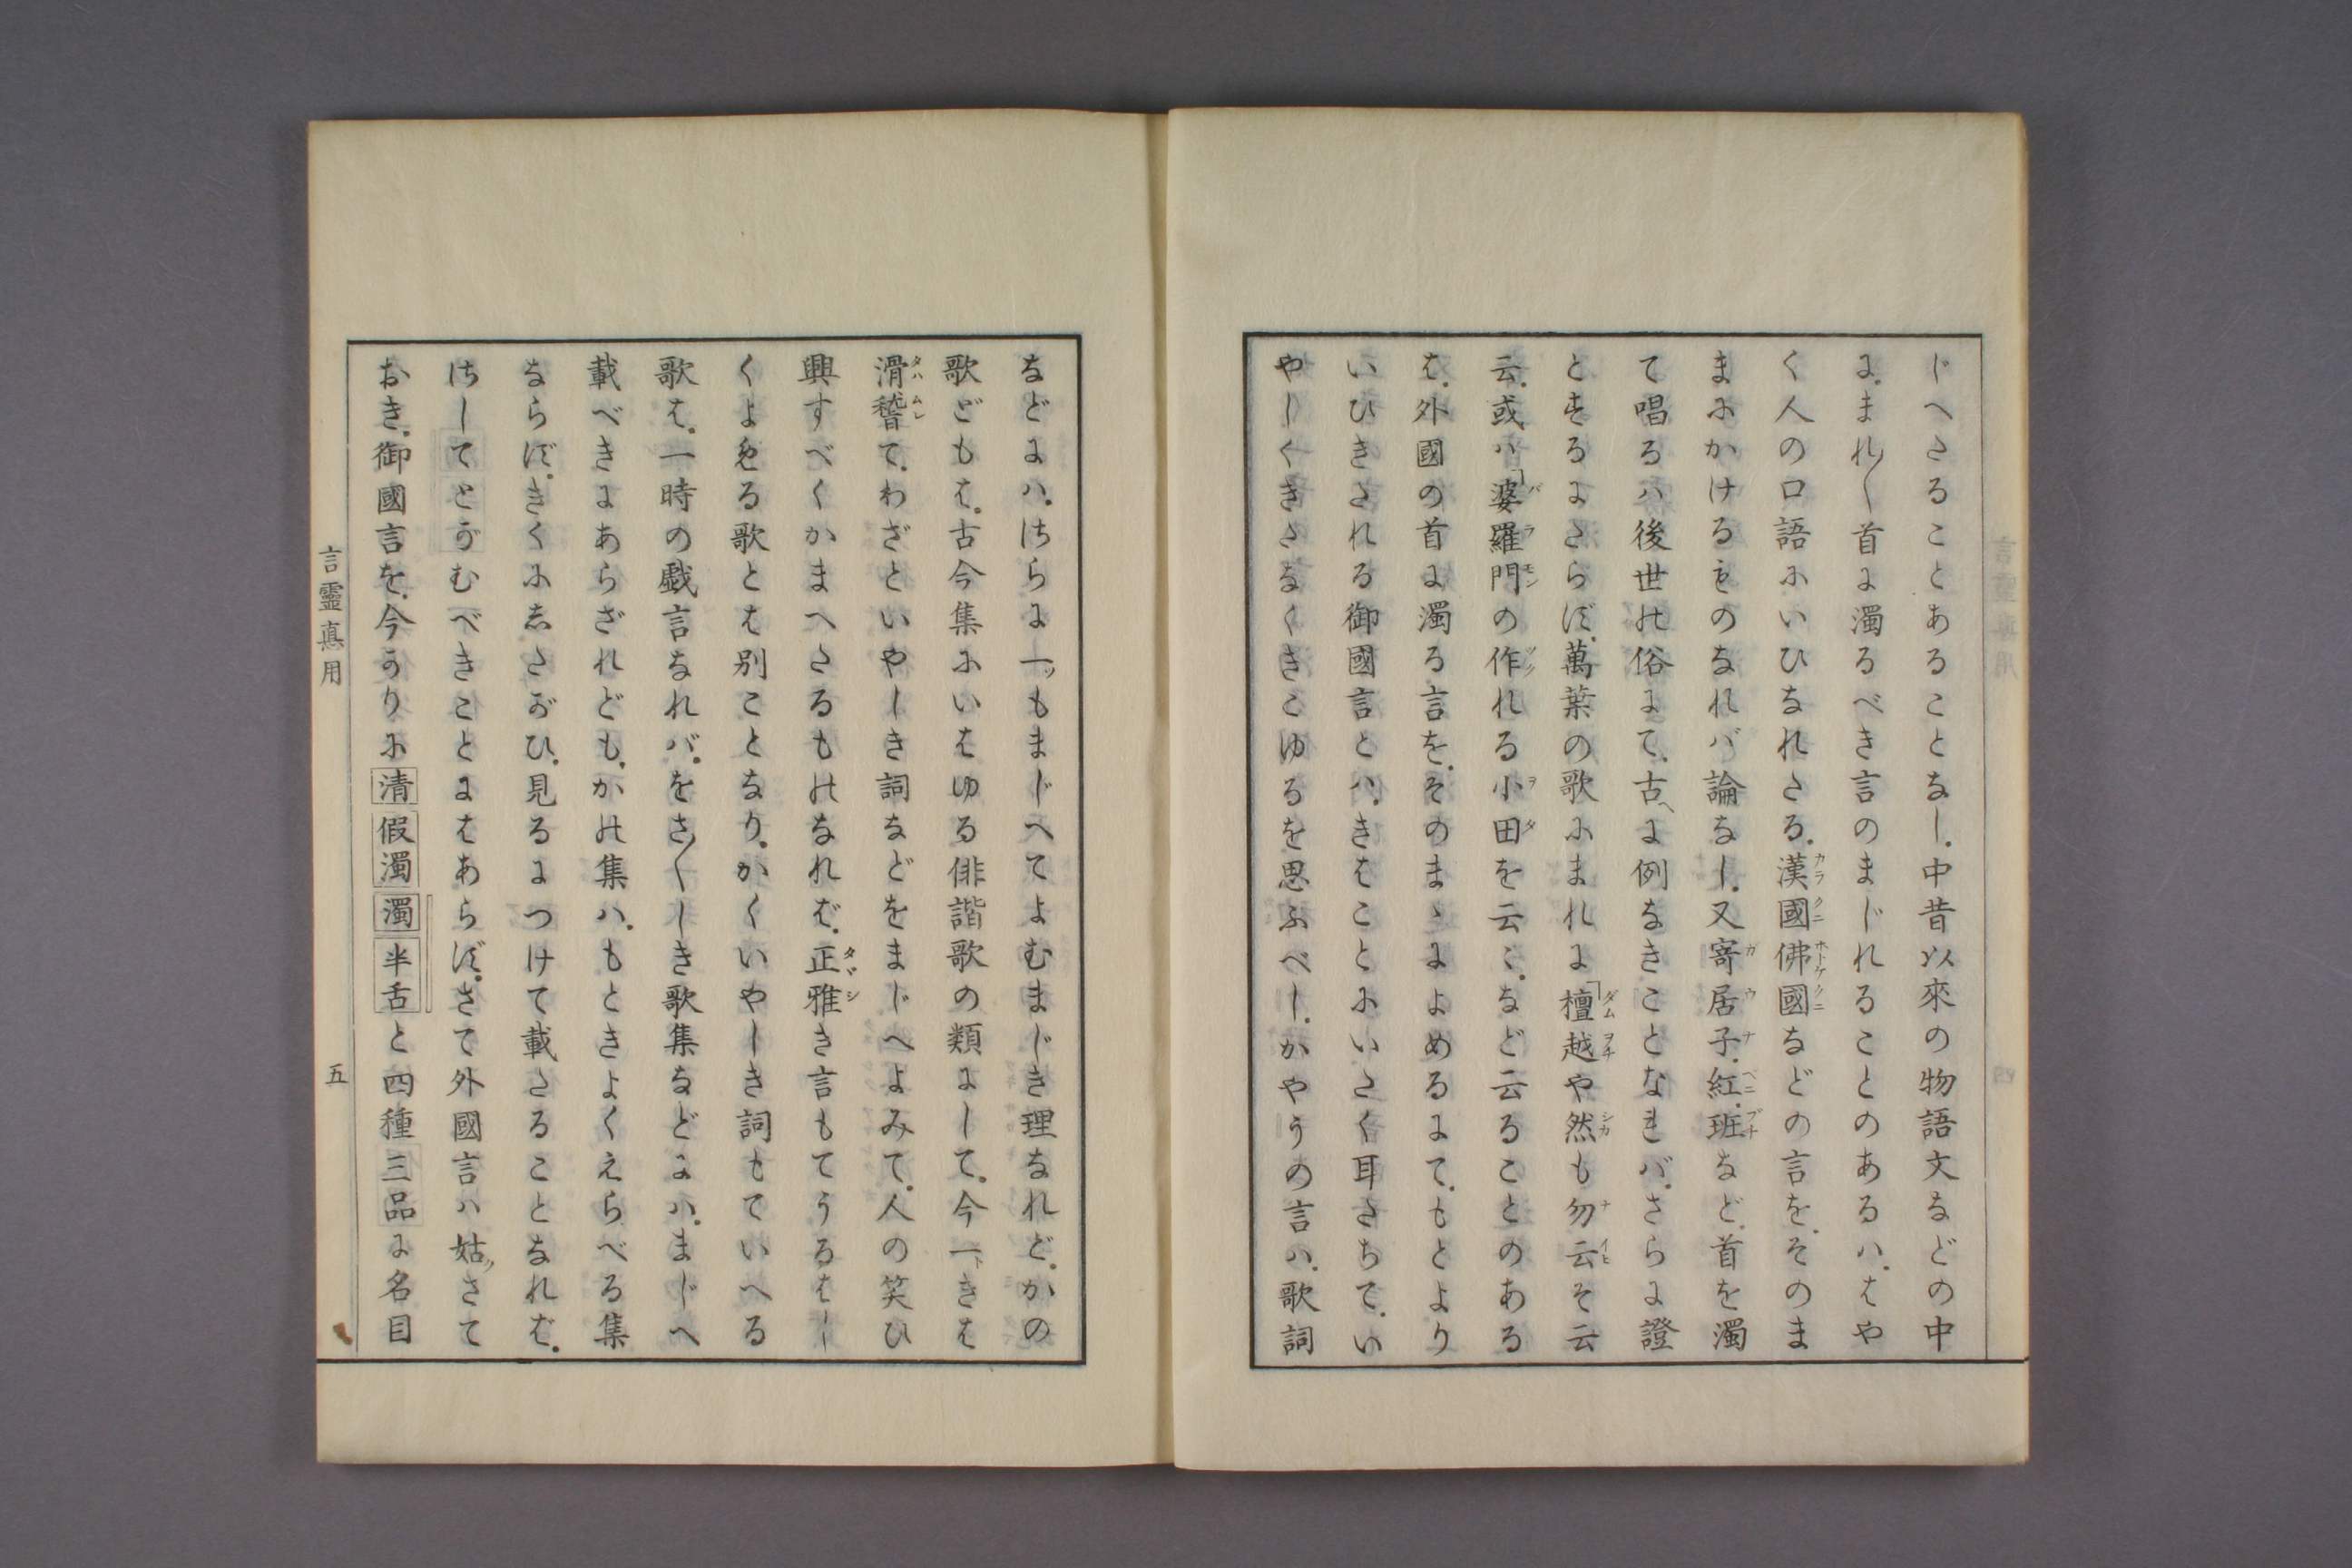 じへたることあることなし．中昔以來の物語文などの中
に．まれ〳〵首に濁るべき言のまじれることのあるハ．はや
く人の口語にいひなれたる．漢國佛國などの言を．そのま
まにかけるものなれバ論なし．又寄居子．紅．班など．首を濁
て唱るハ後世の俗にて．古へに例なきことなれバ．さらに證
とするにたらず．萬葉の歌にまれに「檀越や然も勿云そ云
云．或ハ「婆羅門の作れる小田を云〻．など云ることのある
は．外國の首に濁る言を．そのまゝによめるにて．もとより
いひきたれる御國言とハ．きはことにいたく耳たちて．い
やしくきたなくきこゆるを思ふべし．かやうの言ハ．歌詞
などにハ．けらに一ツもまじへてよむまじき理なれど．かの
歌どもは．古今集にいはゆる俳諧歌の類にして．今一トきは
滑稽て．わざといやしき詞などをまじへよみて．人の笑ひ
興すべくかまへたるものなれば．正雅き言もてうるはし
くよめる歌とは別ことなり．かくいやしき詞もていへる
歌は．一時の戯言なれバ．ををさ〳〵しき歌集などにハ．まじへ
載べきにあらざれども．かの集ハ．もときよくえらべる集
ならず．きくにしたがひ．見るにつけて載たることなれば．
けしてとがむべきことにはあらず．さて外國言ハ姑クさて
おき．御國言を．今うりに清假濁濁半舌と四種三品に名目
言靈真用
五